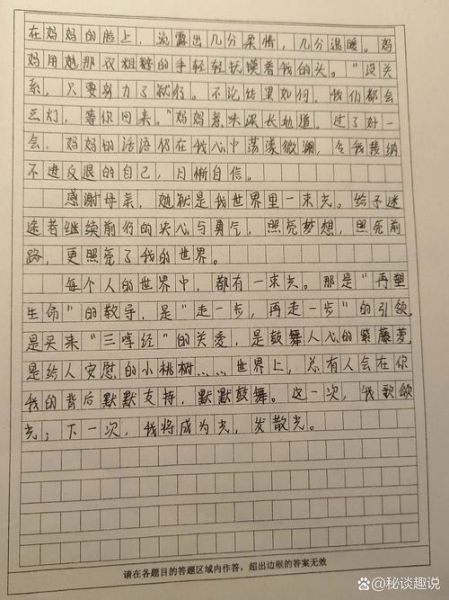 在妈妈的脸上，流露出几分柔情，几分温暖。妈
妈用她那双粗糙的手轻轻抚摸着我的头。“没关
系，只要努力了就行。不论结果如何，我们都会
亮灯，等你回来。”妈妈意味深长地道。过了好一
会，妈妈的话语仍在我心中荡漾微澜，令我接纳
不进反退的自己，日渐自信。
感谢母亲，她就是我世界里一束光。给予迷
途者继续前行的决心与勇气，照亮梦想，照亮前
路，更照亮了我的世界。
每个人的世界中，都有一束光。那是“再塑
生命”的教导，是“走一步，再走一步”的引领，
是买来“三哼经”的关爱，是鼓舞人心的紫藤萝，
是给人安慰的小桃树……世界上，总有人会在你
我的背后默默支持，默默鼓舞。这一次，我歌颂
光；下一次，我将成为光，发散光。
请在各题目的答题区域内作答，超出边框的答案无效
@秘谈趣说